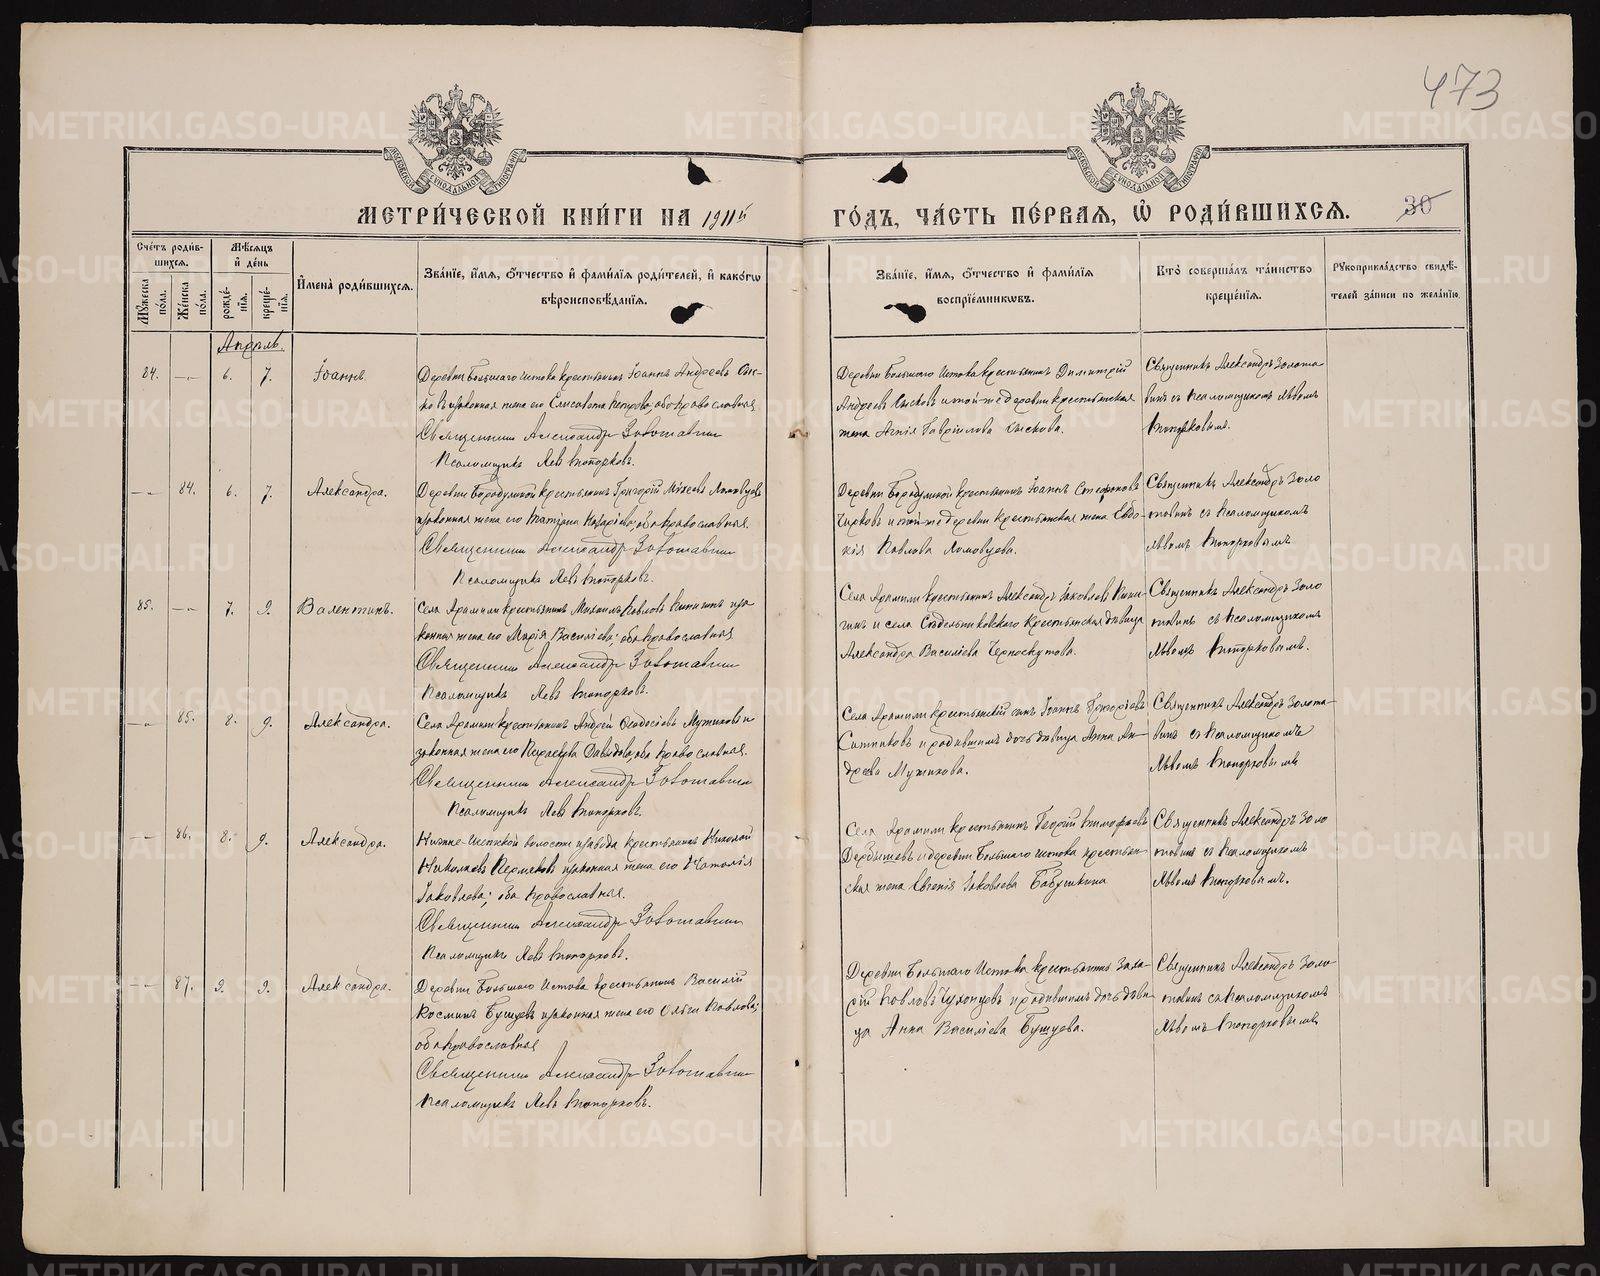 473
МЕТРИ́ЧЕСКОЙ КНИ́ГИ НА 1911й ГО́ДЪ, ЧА́СТЬ ПЕ́РВАЯ, Ѡ РОДИ́ВШИХСЯ.
30
Сче́тъ роди́в-
шихся.
Мꙋ́жеска по́ла.
Же́нска по́ла.
Мѣ́сяцъ
и҆ де́нь
рожде́-
нїя.
креще́-
нїя.
И҆мена̀ роди́вшихся.
Зва́нїе, и҆́мя, ѻ҆́тчество и҆ фами́лїя роди́телей, и҆ како́гѡ
вѣроисповѣ́данїя.
Зва́нїе, и҆́мя, ѻ҆́тчество и҆ фами́лїя
воспрїе́мникѡвъ.
Кто̀ соверша́лъ та́инство
креще́нїя.
Рꙋкоприкла́дство свидѣ́-
телей за́писи по жела́нїю.
Апрѣль.
84. — 6. 7. Іоаннъ.
Деревни Большаго Истока крестьянинъ Іоаннъ Андреевъ
законная жена его Елисавета Петрова, оба православные
Священникъ Александръ Золотавинъ
Псаломщикъ Левъ Топорковъ.
Деревни Большого Истока крестьянинъ Димитрій
Андреевъ Сысковъ и той-же деревни крестьянская
жена Агнія Гавріилова Сыскова.
Священникъ Александръ Золота
винъ съ псаломщикомъ Львомъ
Топорковымъ.
— 84. 6. 7. Александра.
Деревни Бородулиной крестьянинъ Григорій Михеевъ Ломовцевъ
законная жена его Татіана Назаріева, оба православные.
Священникъ Александръ Золотавинъ
Псаломщикъ Левъ Топорковъ.
Деревни Бородулиной крестьянинъ Іоаннъ Стефановъ
Чирковъ и той-же деревни крестьянская жена Евдо-
кія Павлова Ломовцева.
Священникъ Александръ Золо
тавинъ съ псаломщикомъ
Львомъ Топорковымъ
85. — 7. 9. Валентинъ.
Села Арамили крестьянинъ Михаилъ Павловъ за
конная жена его Марія Василіева; оба православные
Священникъ Александръ Золотавинъ
Псаломщикъ Левъ Топорковъ.
Села Арамили крестьянинъ Александръ Іаковлевъ
и села Седельниковскаго крестьянская дѣвица
Александра Василіева Черноскутова.
Священникъ Александръ Золо
тавинъ съ псаломщикомъ
Львомъ Топорковымъ.
— 85. 8. 9. Александра.
Села Арамили крестьянинъ Андрей Ѳеодосіевъ Мужиковъ и
законная жена его Параскева Давидова, оба православные.
Священникъ Александръ Золотавинъ
Псаломщикъ Левъ Топорковъ.
Села Арамили крестьянскій сынъ Іоаннъ Григоріевъ
Ситниковъ и родившимъ дочь дѣвица Анна Ан-
дреева Мужикова.
Священникъ Александръ Золота-
винъ съ псаломщикомъ
Львомъ Топорковымъ
— 86. 8. 9. Александра.
Нижне-Исетской волости завода крестьянинъ Николай
Николаевъ Пермяковъ законная жена его Наталія
Іаковлева; оба православные.
Священникъ Александръ Золотавинъ
Псаломщикъ Левъ Топорковъ.
Села Арамили крестьянинъ Георгій Тимофеевъ
Дербышевъ и деревни Большаго Истока крестьян-
ская жена Евгенія Іаковлева Бабушкина
Священникъ Александръ Золо
тавинъ съ псаломщикомъ
Львомъ Топорковымъ.
— 87. 9. 9. Александра.
Деревни Большаго Истока крестьянинъ Василій
Косминъ Бушуевъ законная жена его Ольга Павлова;
оба православные
Священникъ Александръ Золотавинъ
Псаломщикъ Левъ Топорковъ.
Деревни Большаго Истока крестьянинъ Заха-
рій Павловъ и родившимъ дочь дѣви-
ца Анна Василіева Бушуева.
Священникъ Александръ Золо-
тавинъ съ псаломщикомъ
Львомъ Топорковымъ
METRIKI.GASO-URAL.RU